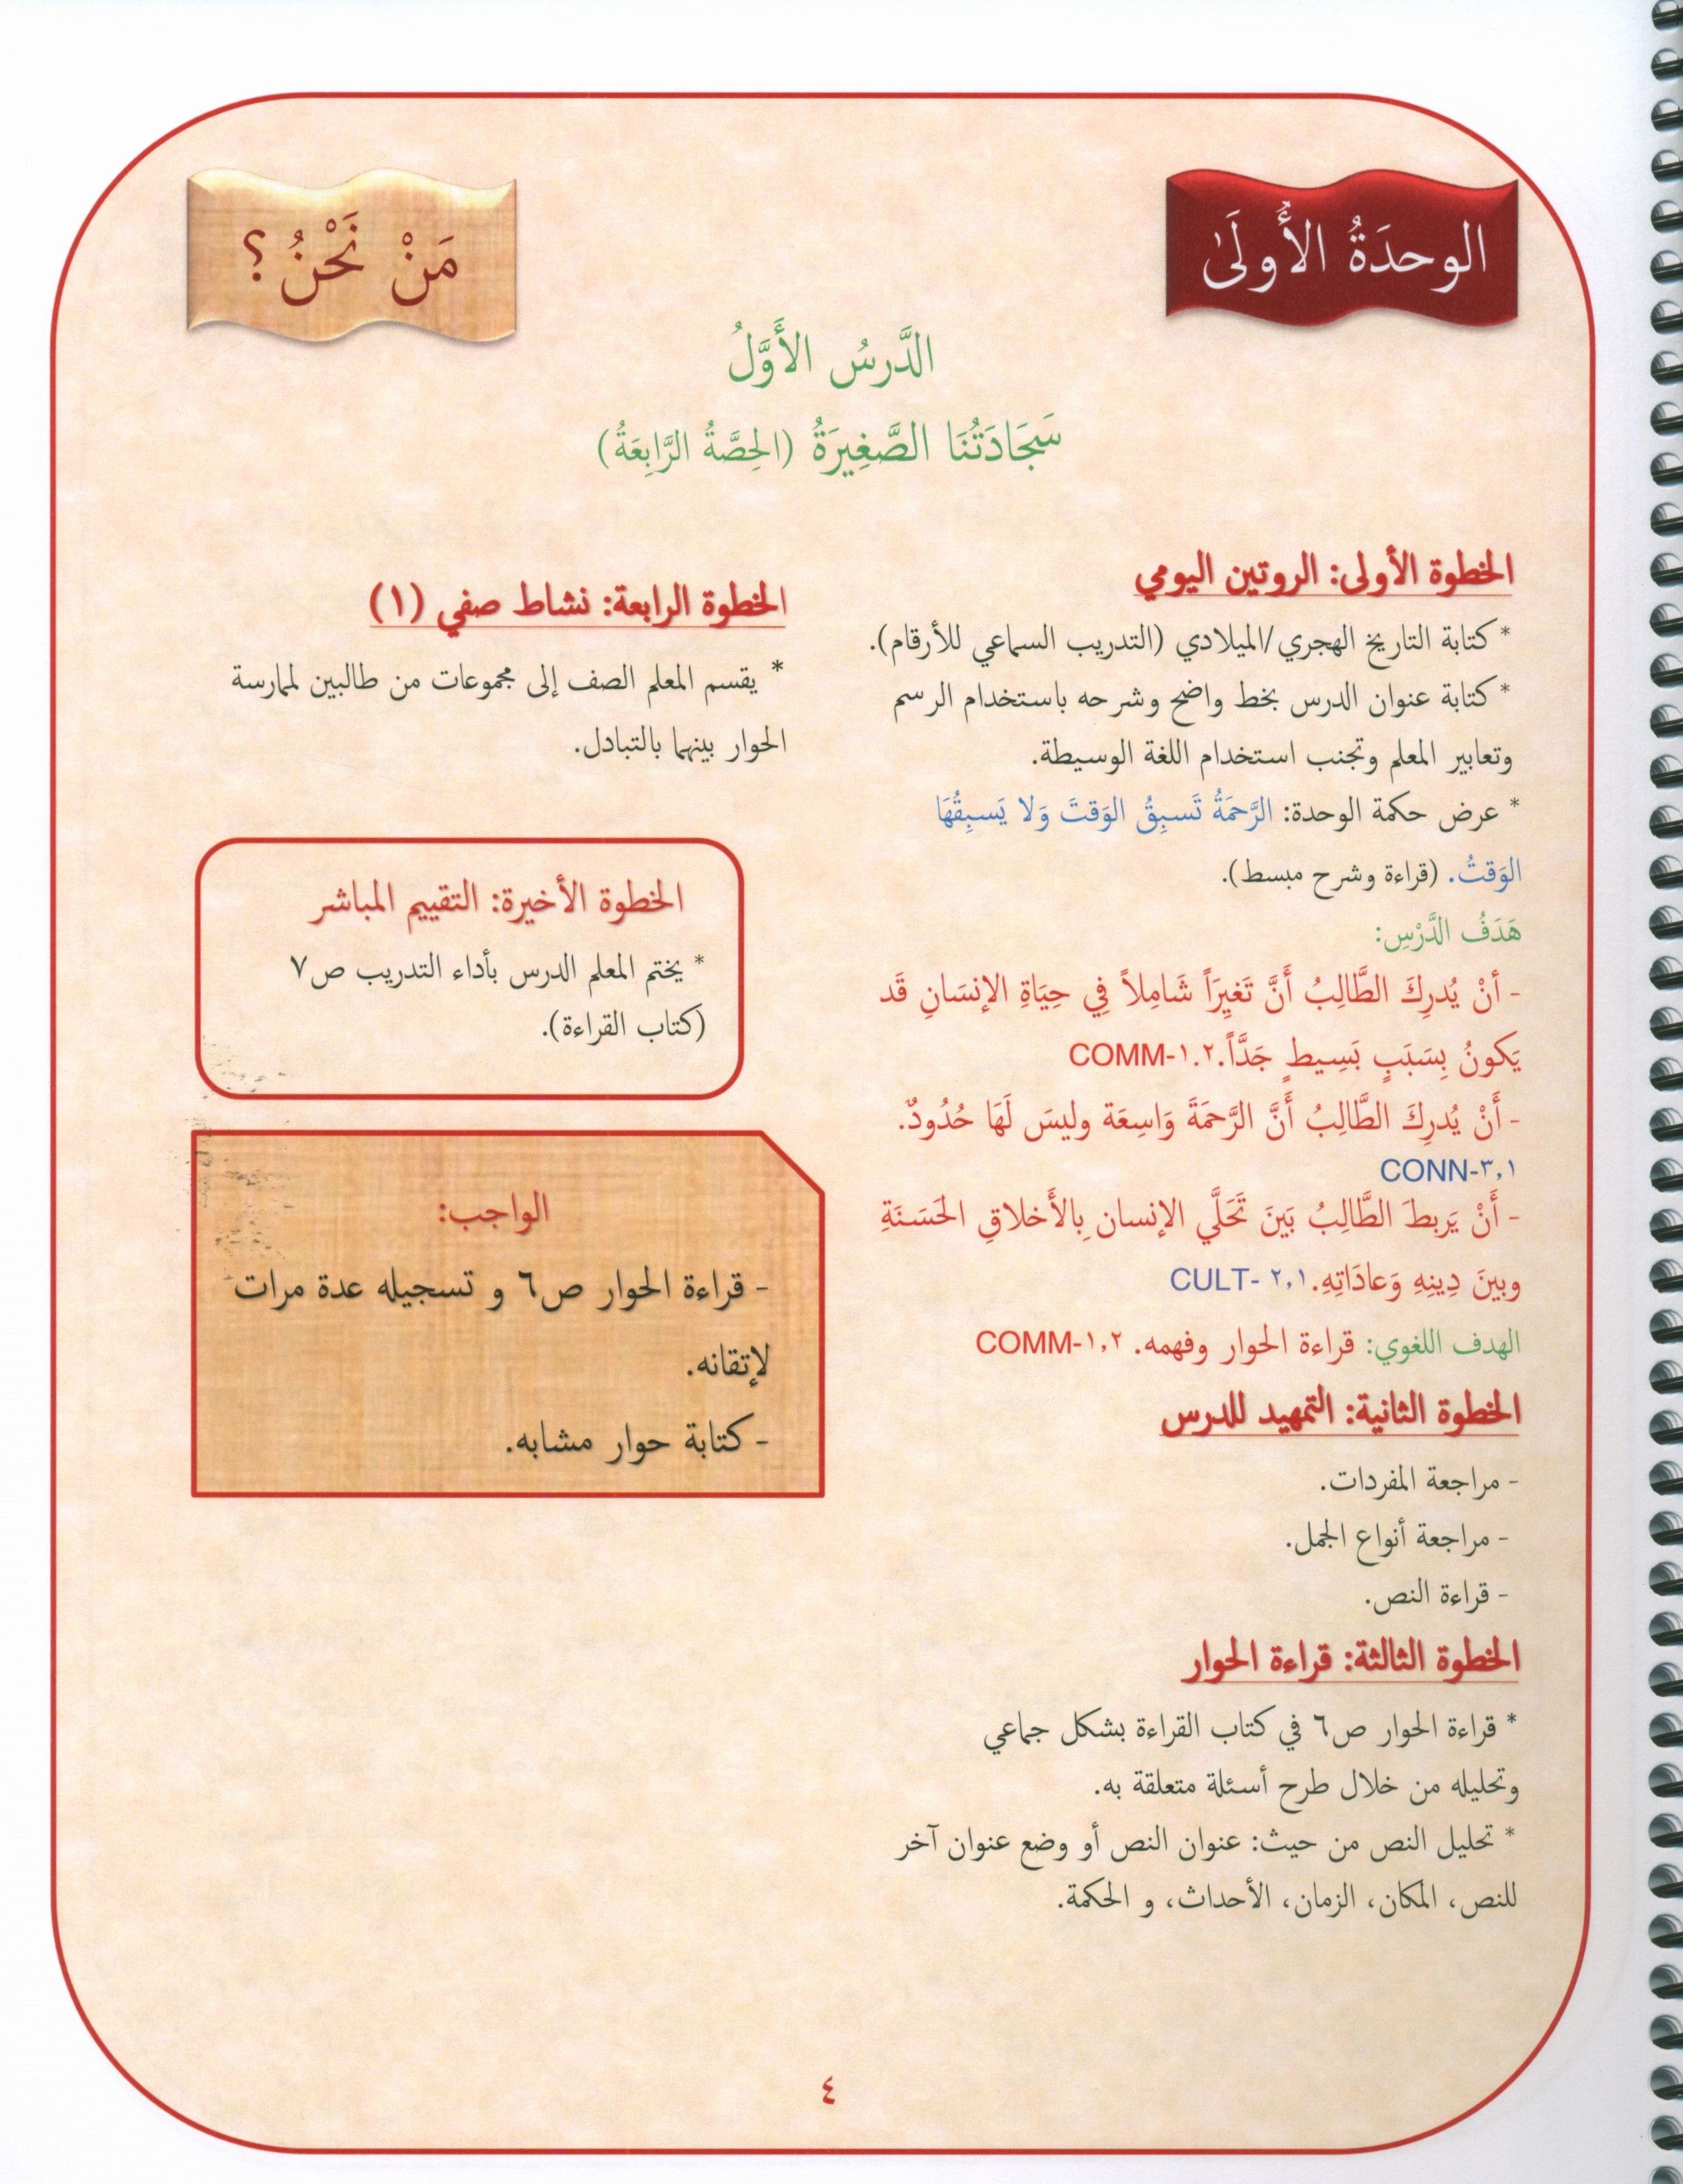 الوحدَةُ الأُولَىٰ
مَنْ نَحْنُ؟
الدَّرسُ الأَوَّلُ
سَجَادَتُنَا الصَّغِيرَةُ (الحِصَّةُ الرَّابِعَةُ)
الخطوة الأولى: الروتين اليومي
* كتابة التاريخ الهجري/الميلادي (التدريب السماعي للأرقام).
* كتابة عنوان الدرس بخط واضح وشرحه باستخدام الرسم
وتعابير المعلم وتجنب استخدام اللغة الوسيطة.
* عرض حكمة الوحدة: الرَّحمَةُ تَسبِقُ الوَقتَ وَلا يَسبِقُهَا
الوَقتُ. (قراءة وشرح مبسط).
هَدَفُ الدَّرْسِ:
- أنْ يُدرِكَ الطَّالِبُ أَنَّ تَغيِرَاً شَامِلاً فِي حِيَاةِ الإنسَانِ قَد
يَكونُ بِسَبَبٍ بَسِيطٍ جَدَّاً.COMM-١.٢
- أَنْ يُدرِكَ الطَّالِبُ أَنَّ الرَّحمَةَ وَاسِعَة وليسَ لَهَا حُدُودٌ.
CONN-٣,١
- أَنْ يَربِطَ الطَّالِبُ بَينَ تَحَلَّي الإنسان بِالأَخلاقِ الحَسَنَةِ
وبينَ دِينِهِ وَعادَاتِهِ.CULT- ٢,١
الهدف اللغوي: قراءة الحوار وفهمه. COMM-١,٢
الخطوة الثانية: التمهيد للدرس
- مراجعة المفردات.
- مراجعة أنواع الجمل.
- قراءة النص.
الخطوة الثالثة: قراءة الحوار
* قراءة الحوار ص٦ في كتاب القراءة بشكل جماعي
وتحليله من خلال طرح أسئلة متعلقة به.
* تحليل النص من حيث: عنوان النص أو وضع عنوان آخر
للنص، المكان، الزمان، الأحداث، و الحكمة.
الخطوة الرابعة: نشاط صفي (١)
* يقسم المعلم الصف إلى مجموعات من طالبين لممارسة
الحوار بينهما بالتبادل.
الخطوة الأخيرة: التقييم المباشر
* يختم المعلم الدرس بأداء التدريب ص٧
(كتاب القراءة).
الواجب:
- قراءة الحوار ص٦ و تسجيله عدة مرات
لإتقانه.
- كتابة حوار مشابه.
٤